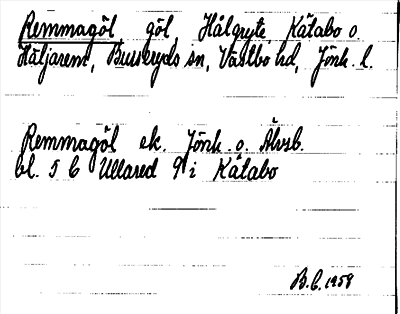 Remmagöl, göl, Hålgryte, Kåtabo o.
Häljarem, Busseryds sn, Västbo hd, Jönk. l.
Remmagöl ek. Jönk. o. Älvsb.
bl. 5 C Ullared 9 i Kåtabo
B.C. 1958